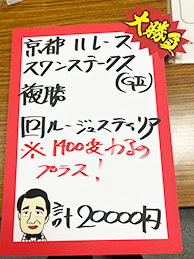 大勝負
京都11レース
スワンステークス
(GⅡ)
複勝
回ルージュスティリア
※1400変わるの
プラス!
計20000円